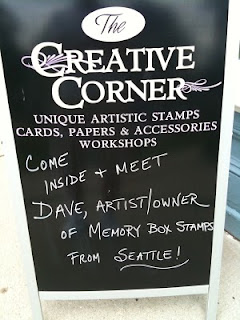 The
CREATIVE
CORNER
UNIQUE ARTISTIC STAMPS
CARDS, PAPERS & ACCESSORIES
WORKSHOPS
COME
INSIDE + MEET
DAVE, ARTIST/OWNER
OF MEMORY BOX STAMPS
FROM SEATTLE!